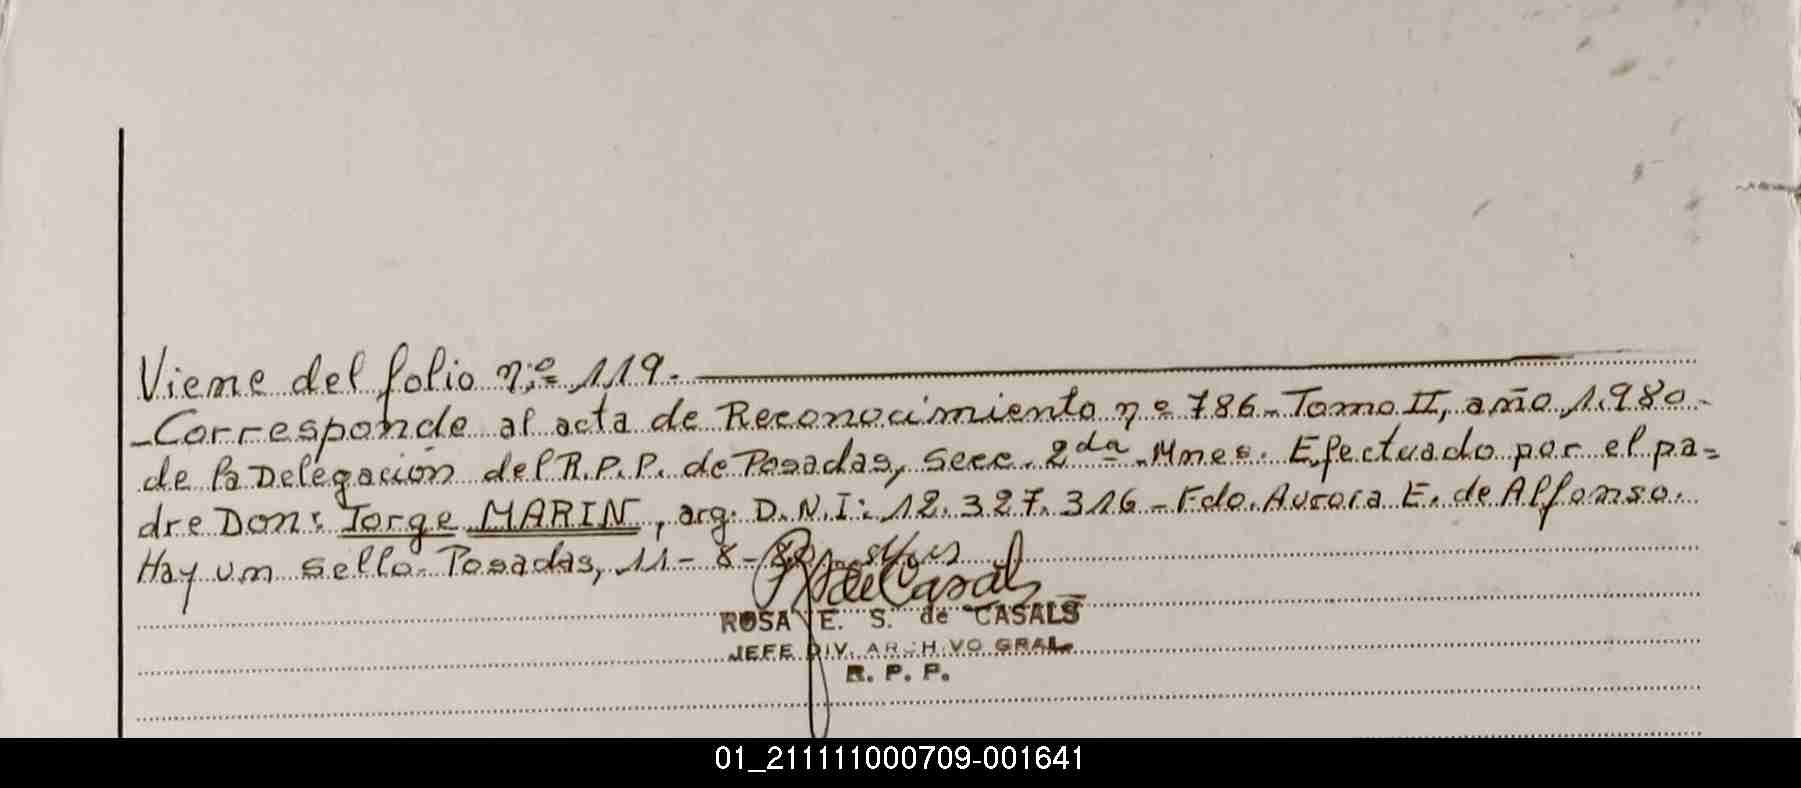 Viene del folio n.º 119.
-Corresponde al acta de Reconocimiento nº 786-Tomo II, año 1.980-
de la Delegación del R.P.P. de Posadas, secc. 2da. Mnes. Efectuado por el pa=
dre Don: Jorge MARIN, arg. D.N.I: 12.327.316- Fdo. Aurora E. de Alfonso.
Hay un sello. Posadas, 11-8-
ROSA E. S. de CASALS
JEFE DIV. ARCHIVO GRAL.
R. P. P.
01_211111000709-001641